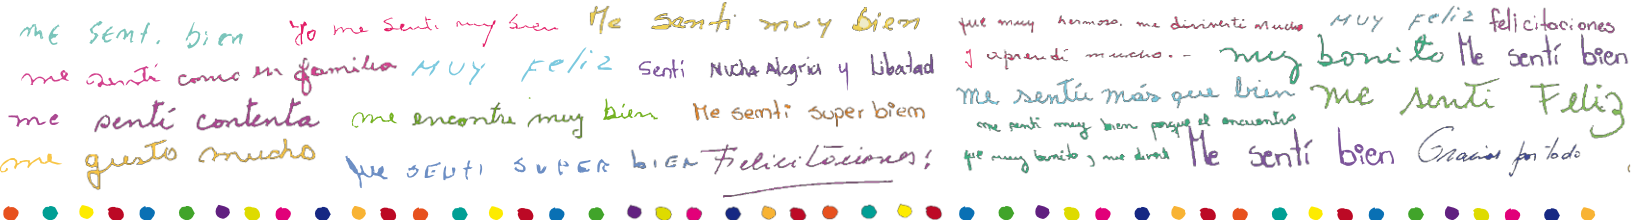 me sentí bien
Yo me sentí muy bien
Me sentí muy bien
fue muy hermoso. me divinerti mucho
y aprendí mucho. -
MUY FELIZ
felicitaciones
me sentí como en familia
MUY FELIZ
Sentí Mucha Alegria y libertad
muy bonito
Me sentí bien
me sentí contenta
me encontre muy bien
Me semti super biem
me sentíu más que bien
me senti Feliz
me gusto mucho
fue SENTI SUPER BIEN
Felicitaciones!
me senti muy bien porque el encuentro
fue muy bonito y me diverti
Me sentí bien
Gracias por todo